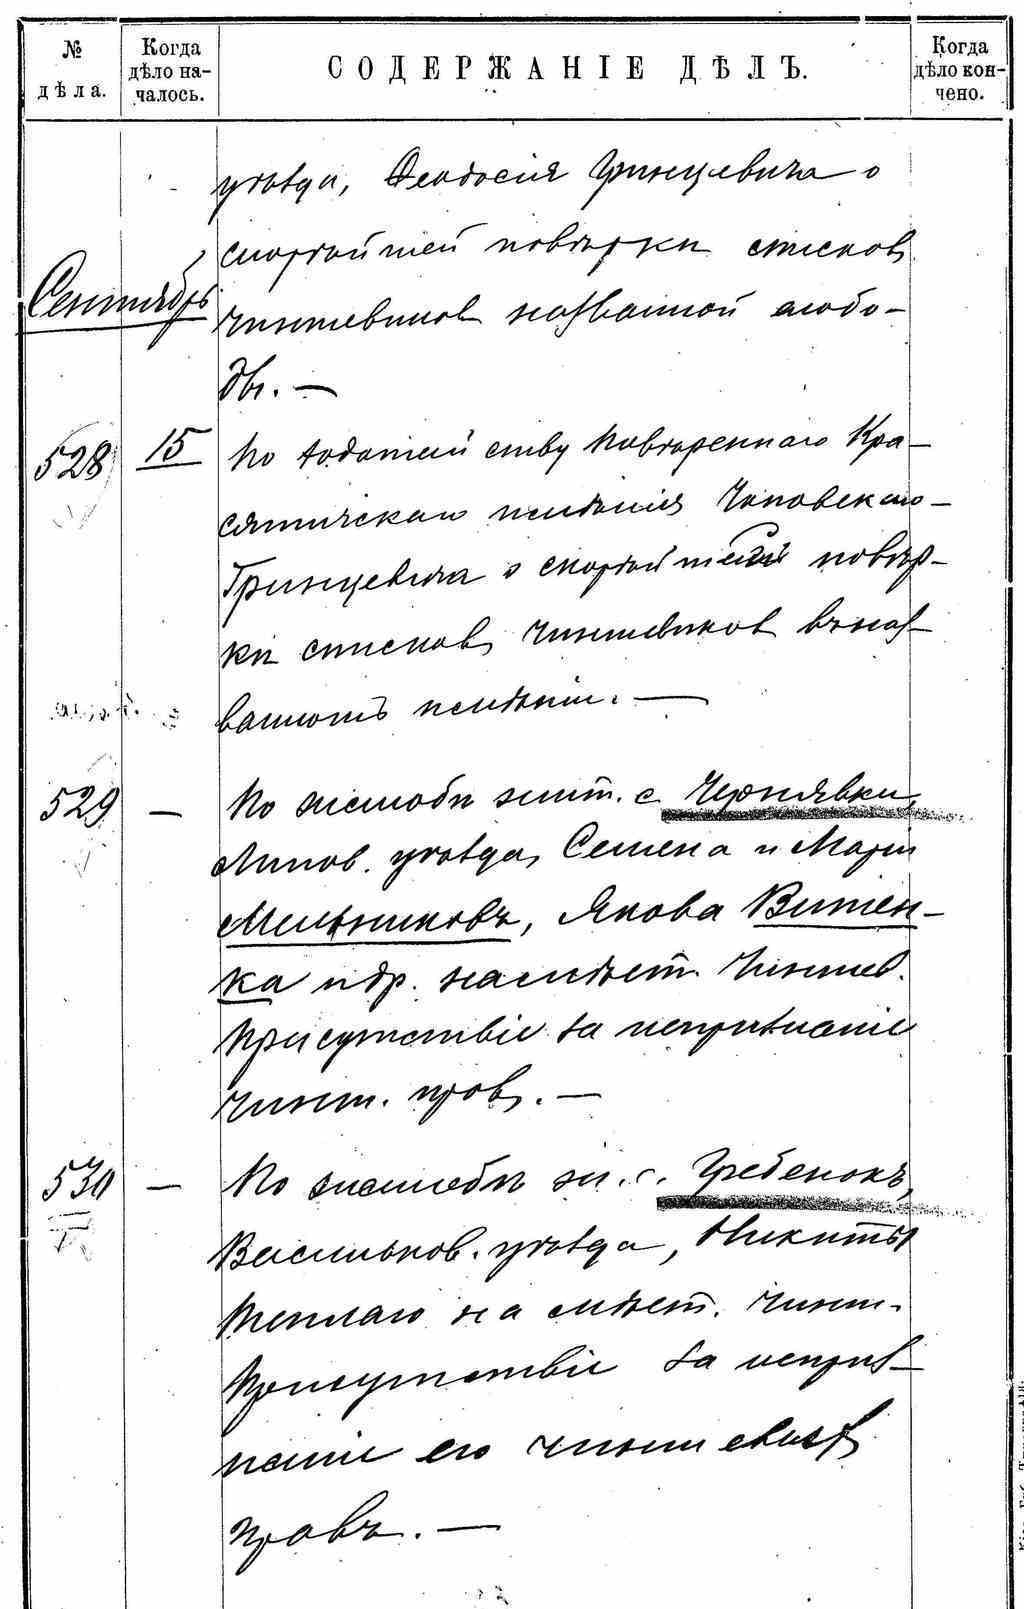 № дѣла.
Когда дѣло началось.
СОДЕРЖАНІЕ ДѢЛЪ.
Когда дѣло кончено.
уѣзда, Ѳеодосія Гринцевича о
скорѣйшей повѣрки списковъ
Сентябрь
чиншевиковъ названной слобо-
ды. —
528 15 По ходатайству Повѣреннаго Кра-
сятическаго имѣнія Чаповскаго-
Гринцевича о скорѣйшей повѣр-
ки списковъ чиншевиковъ въ наз-
ванномъ имѣніи. —
529 — По жалобѣ жит. с. Чернявки,
Липов. уѣзда, Семена и Маріи
Мельниковъ, Якова Витен-
ка и др. на мѣст. Чиншев.
Присутствіе за непризнаніе
чинш. правъ. —
530 — По жалобѣ ж. с. Гребенокъ,
Васильков. уѣзда, Никиты
Теплаго на мѣст. чинш.
Присутствіе за неприз-
наніе его чиншевыхъ
правъ. —